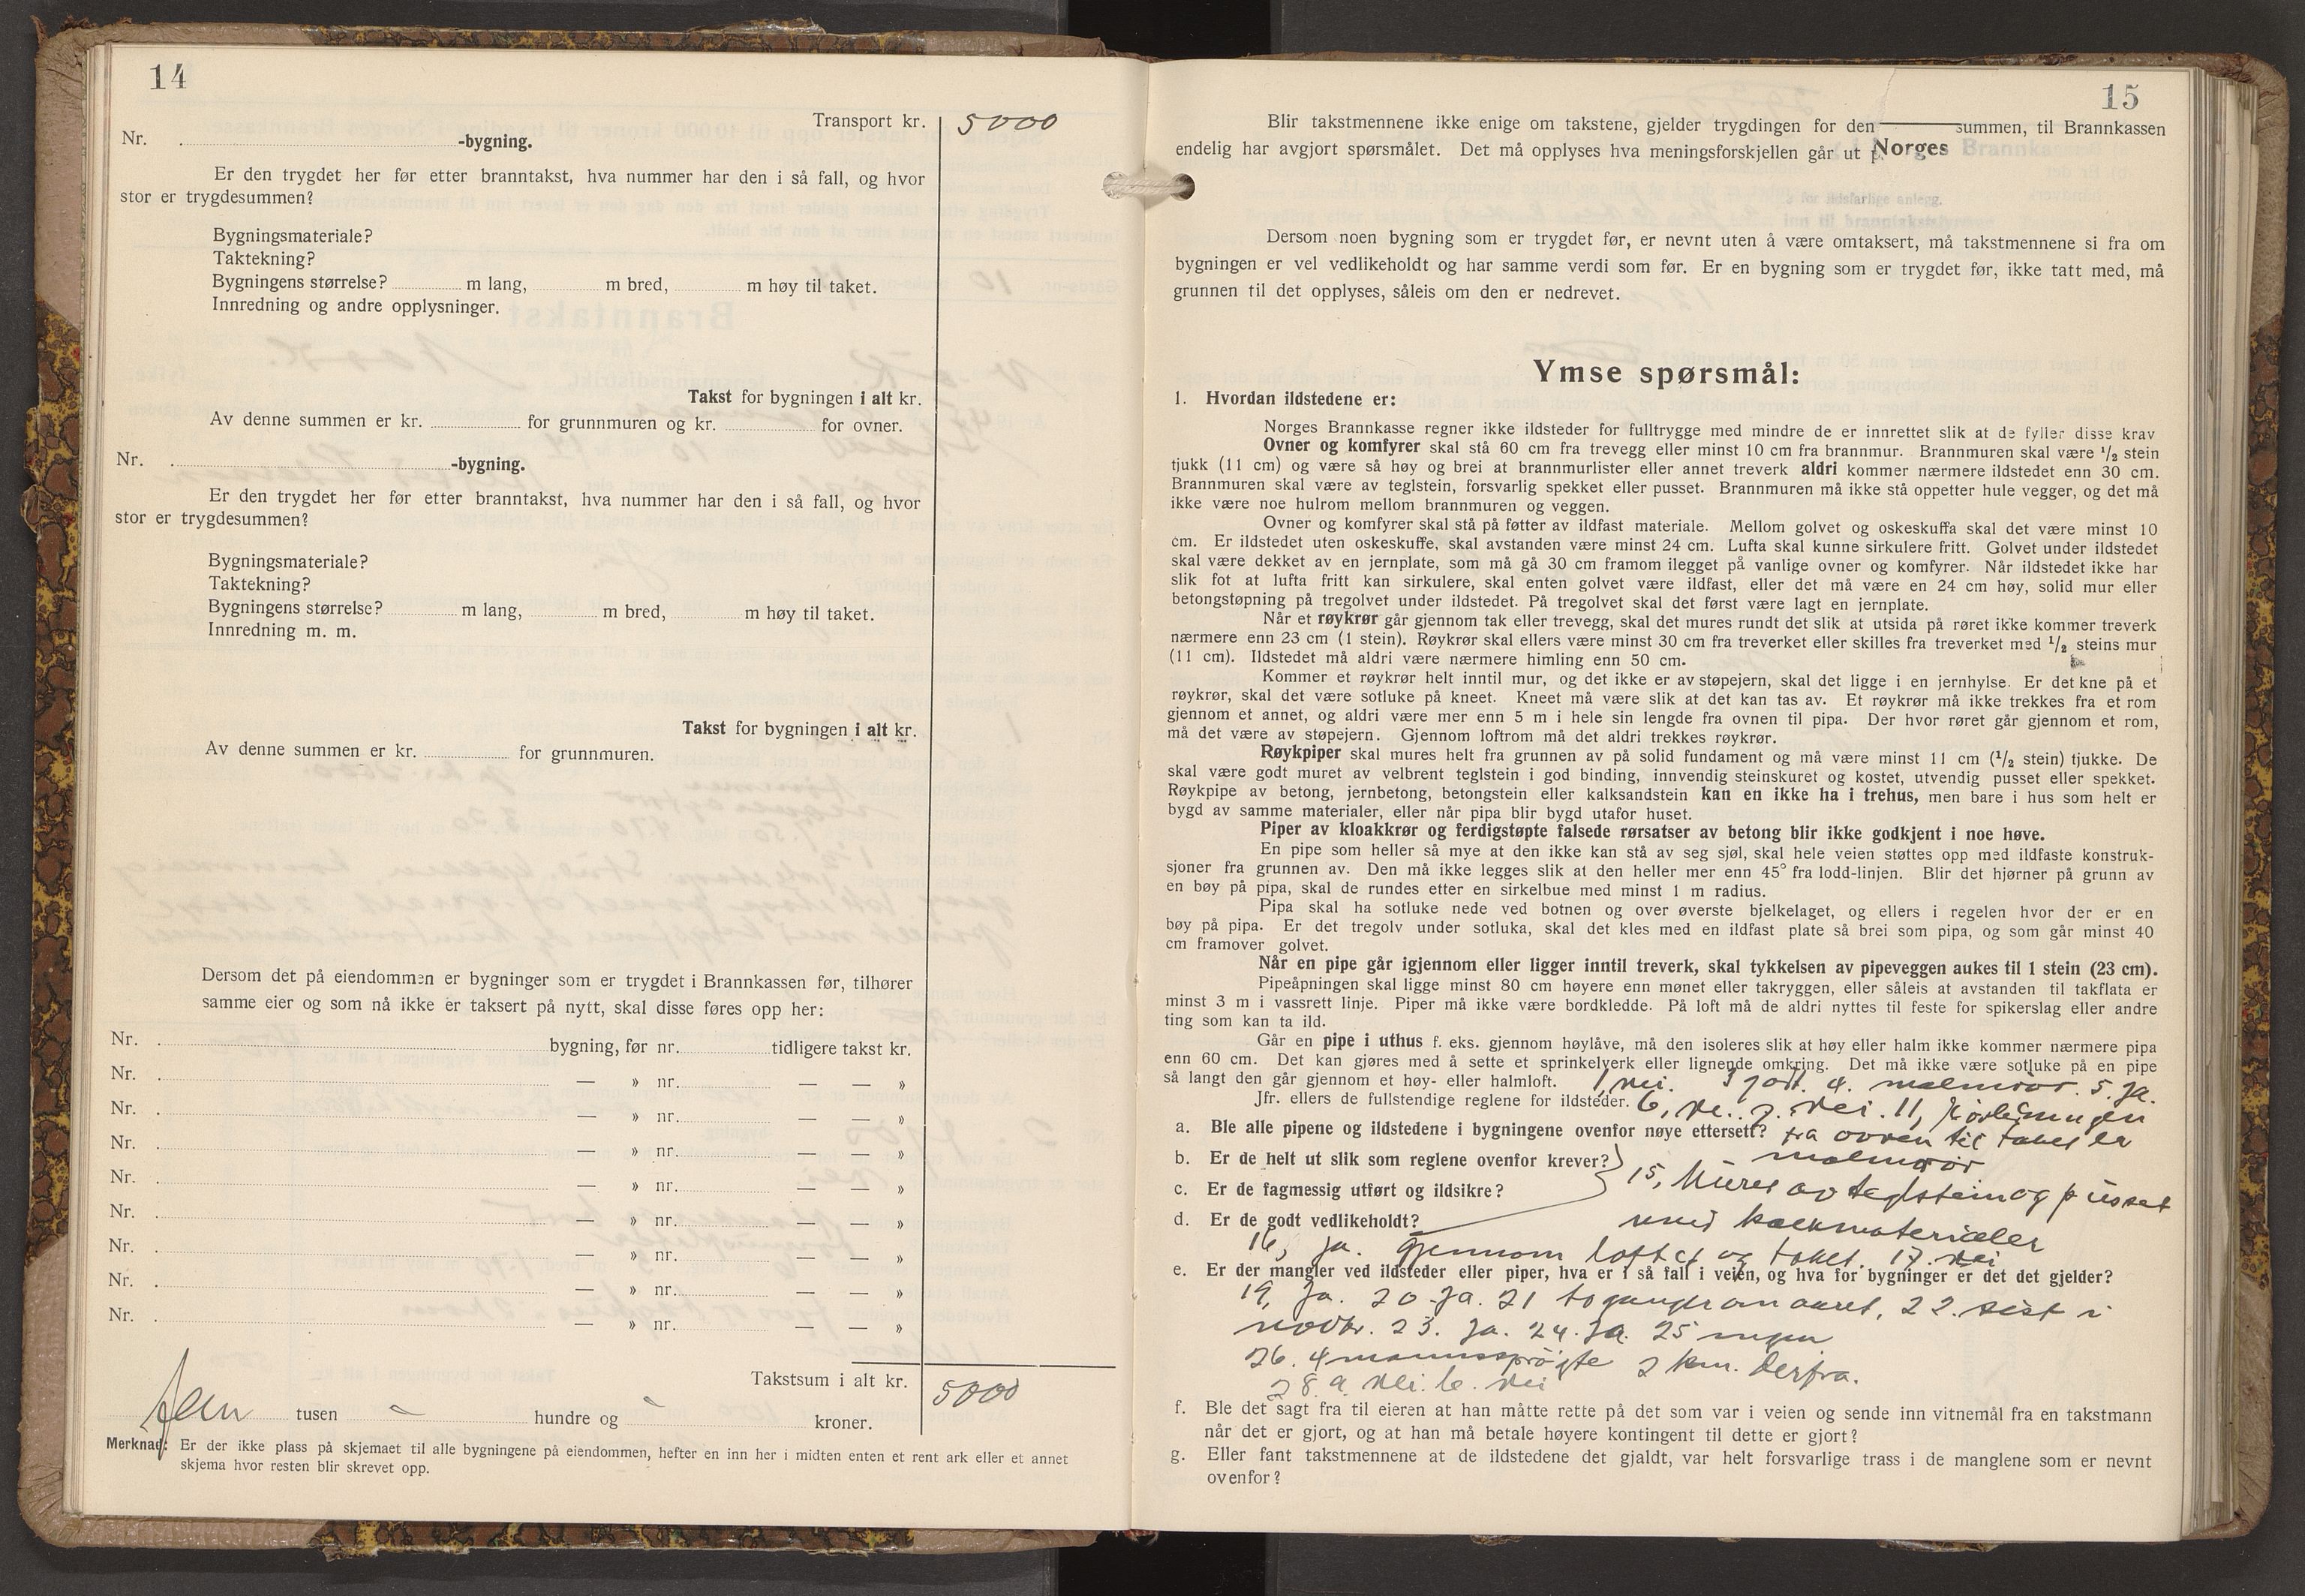 14
Transport kr. 5000
Nr. -bygning.
Er den trygdet her før etter branntakst, hva nummer har den i så fall, og hvor
stor er trygdesummen?
Bygningsmateriale?
Taktekning?
Bygningens størrelse? m lang, m bred, m høy til taket.
Innredning og andre opplysninger.
Takst for bygningen i alt kr.
Av denne summen er kr. for grunnmuren og kr. for ovner.
Nr. -bygning.
Er den trygdet her før etter branntakst, hva nummer har den i så fall, og hvor
stor er trygdesummen?
Bygningsmateriale?
Taktekning?
Bygningens størrelse? m lang, m bred, m høy til taket.
Innredning m. m.
Takst for bygningen i alt kr.
Av denne summen er kr. for grunnmuren.
Dersom det på eiendommen er bygninger som er trygdet i Brannkassen før, tilhører
samme eier og som nå ikke er taksert på nytt, skal disse føres opp her:
Nr. bygning, før nr. tidligere takst kr.
Nr. — » nr. — — »
Nr. — » nr. — — »
Nr. — » nr. — — »
Nr. — » nr. — — »
Nr. — » nr. — — »
Nr. — » nr. — — »
Nr. — » nr. — — »
Nr. — » nr. — — »
Takstsum i alt kr. 5000
Fem tusen - hundre og - kroner.
Merknad: Er der ikke plass på skjemaet til alle bygningene på eiendommen, hefter en inn her i midten enten et rent ark eller et annet
skjema hvor resten blir skrevet opp.
15
Blir takstmennene ikke enige om takstene, gjelder trygdingen for den summen, til Brannkassen
endelig har avgjort spørsmålet. Det må opplyses hva meningsforskjellen går ut p Norges
Dersom noen bygning som er trygdet før, er nevnt uten å være omtaksert, må takstmennene si fra om
bygningen er vel vedlikeholdt og har samme verdi som før. Er en bygning som er trygdet før, ikke tatt med, må
grunnen til det opplyses, såleis om den er nedrevet.
Ymse spørsmål:
1. Hvordan ildstedene er:
Norges Brannkasse regner ikke ildsteder for fulltrygge med mindre de er innrettet slik at de fyller disse krav
Ovner og komfyrer skal stå 60 cm fra trevegg eller minst 10 cm fra brannmur. Brannmuren skal være 1/2 stein
tjukk (11 cm) og være så høy og brei at brannmurlister eller annet treverk aldri kommer nærmere ildstedet enn 30 cm.
Brannmuren skal være av teglstein, forsvarlig spekket eller pusset. Brannmuren må ikke stå oppetter hule vegger, og det må
ikke være noe hulrom mellom brannmuren og veggen.
Ovner og komfyrer skal stå på føtter av ildfast materiale. Mellom golvet og oskeskuffa skal det være minst 10
cm. Er ildstedet uten oskeskuffe, skal avstanden være minst 24 cm. Lufta skal kunne sirkulere fritt. Golvet under ildstedet
skal være dekket av en jernplate, som må gå 30 cm framom ilegget på vanlige ovner og komfyrer. Når ildstedet ikke har
slik fot at lufta fritt kan sirkulere, skal enten golvet være ildfast, eller det må være en 24 cm høy, solid mur eller
betongstøpning på tregolvet under ildstedet. På tregolvet skal det først være lagt en jernplate.
Når et røykrør går gjennom tak eller trevegg, skal det mures rundt det slik at utsida på røret ikke kommer treverk
nærmere enn 23 cm (1 stein). Røykrør skal ellers være minst 30 cm fra treverket eller skilles fra treverket med 1/2 steins mur
(11 cm). Ildstedet må aldri være nærmere himling enn 50 cm.
Kommer et røykrør helt inntil mur, og det ikke er av støpejern, skal det ligge i en jernhylse. Er det kne på et
røykrør, skal det være sotluke på kneet. Kneet må være slik at det kan tas av. Et røykrør må ikke trekkes fra et rom
gjennom et annet, og aldri være mer enn 5 m i hele sin lengde fra ovnen til pipa. Der hvor røret går gjennom et rom,
må det være av støpejern. Gjennom loftrom må det aldri trekkes røykrør.
Røykpiper skal mures helt fra grunnen av på solid fundament og må være minst 11 cm (1/2 stein) tjukke. De
skal være godt muret av velbrent teglstein i god binding, innvendig steinskuret og kostet, utvendig pusset eller spekket.
Røykpipe av betong, jernbetong, betongstein eller kalksandstein kan en ikke ha i trehus, men bare i hus som helt er
bygd av samme materialer, eller når pipa blir bygd utafor huset.
Piper av kloakkrør og ferdigstøpte falsede rørsatser av betong blir ikke godkjent i noe høve.
En pipe som heller så mye at den ikke kan stå av seg sjøl, skal hele veien støttes opp med ildfaste konstruk-
sjoner fra grunnen av. Den må ikke legges slik at den heller mer enn 45° fra lodd-linjen. Blir det hjørner på grunn av
en bøy på pipa, skal de rundes etter en sirkelbue med minst 1 m radius.
Pipa skal ha sotluke nede ved botnen og over øverste bjelkelaget, og ellers i regelen hvor der er en
bøy på pipa. Er det tregolv under sotluka, skal det kles med en ildfast plate så brei som pipa, og som går minst 40
cm framover golvet.
Når en pipe går igjennom eller ligger inntil treverk, skal tykkelsen av pipeveggen aukes til 1 stein (23 cm).
Pipeåpningen skal ligge minst 80 cm høyere enn mønet eller takryggen, eller såleis at avstanden til takflata er
minst 3 m i vassrett linje. Piper må ikke være bordkledde. På loft må de aldri nyttes til feste for spikerslag eller andre
ting som kan ta ild.
Går en pipe i uthus f. eks. gjennom høylåve, må den isoleres slik at høy eller halm ikke kommer nærmere pipa
enn 60 cm. Det kan gjøres med å sette et sprinkelverk eller lignende omkring. Det må ikke være sotluke på en pipe
så langt den går gjennom et høy- eller halmloft. 1, nei. 3 godt. 4. malmrør. 5. Ja.
Jfr. ellers de fullstendige reglene for ildsteder. 6, 7. nei. 11,
a. Ble alle pipene og ildstedene i bygningene ovenfor nøye ettersett? fra ovnen til taket er
b. Er de helt ut slik som reglene ovenfor krever? malmrør
c. Er de fagmessig utført og ildsikre? 15, Muret av teglstein og pusset
d. Er de godt vedlikeholdt? med kalkmaterialer
16, Ja. gjennom loftet og taket. 17. nei
e. Er der mangler ved ildsteder eller piper, hva er i så fall i veien, og hva for bygninger er det det gjelder?
19, Ja. 20 Ja. 21 to ganger om aaret, 22. sist i
novbr. 23. Ja. 24. Ja. 25 ingen
26. 4 mannssprøite 2 km. derfra.
28. a. nei. b. nei
f. Ble det sagt fra til eieren at han måtte rette på det som var i veien og sende inn vitnemål fra en takstmann
når det er gjort, og at han må betale høyere kontingent til dette er gjort?
g. Eller fant takstmennene at de ildstedene det gjaldt, var helt forsvarlige trass i de manglene som er nevnt
ovenfor?